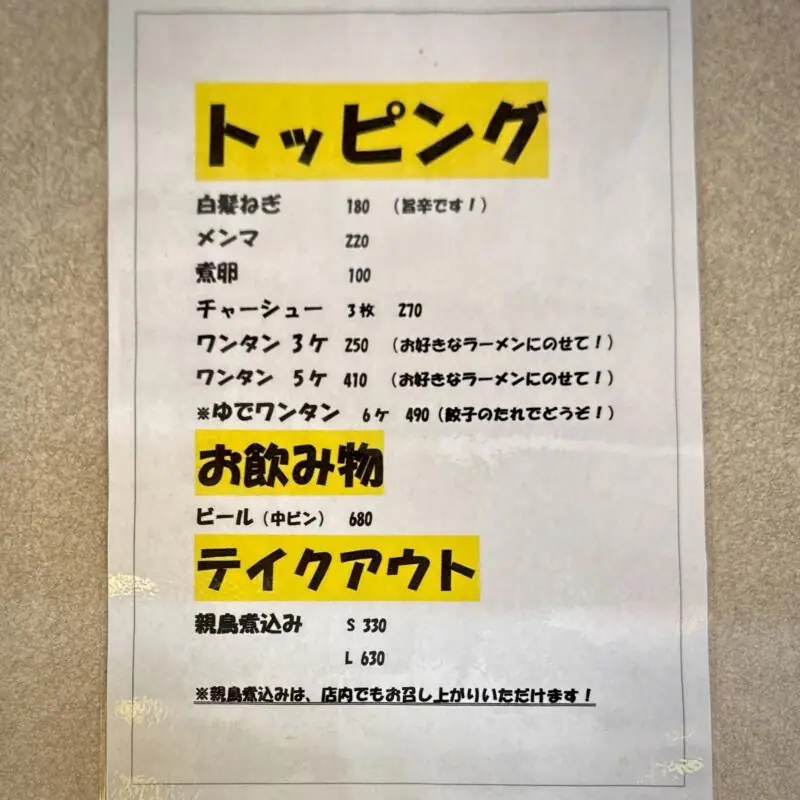 トッピング
白髪ねぎ 180 （旨辛です！）
メンマ 220
煮卵 100
チャーシュー 3枚 270
ワンタン 3ケ 250 （お好きなラーメンにのせて！）
ワンタン 5ケ 410 （お好きなラーメンにのせて！）
※ゆでワンタン 6ケ 490（餃子のたれでどうぞ！）
お飲み物
ビール（中ビン） 680
テイクアウト
親鳥煮込み S 330
L 630
※親鳥煮込みは、店内でもお召し上がりいただけます！